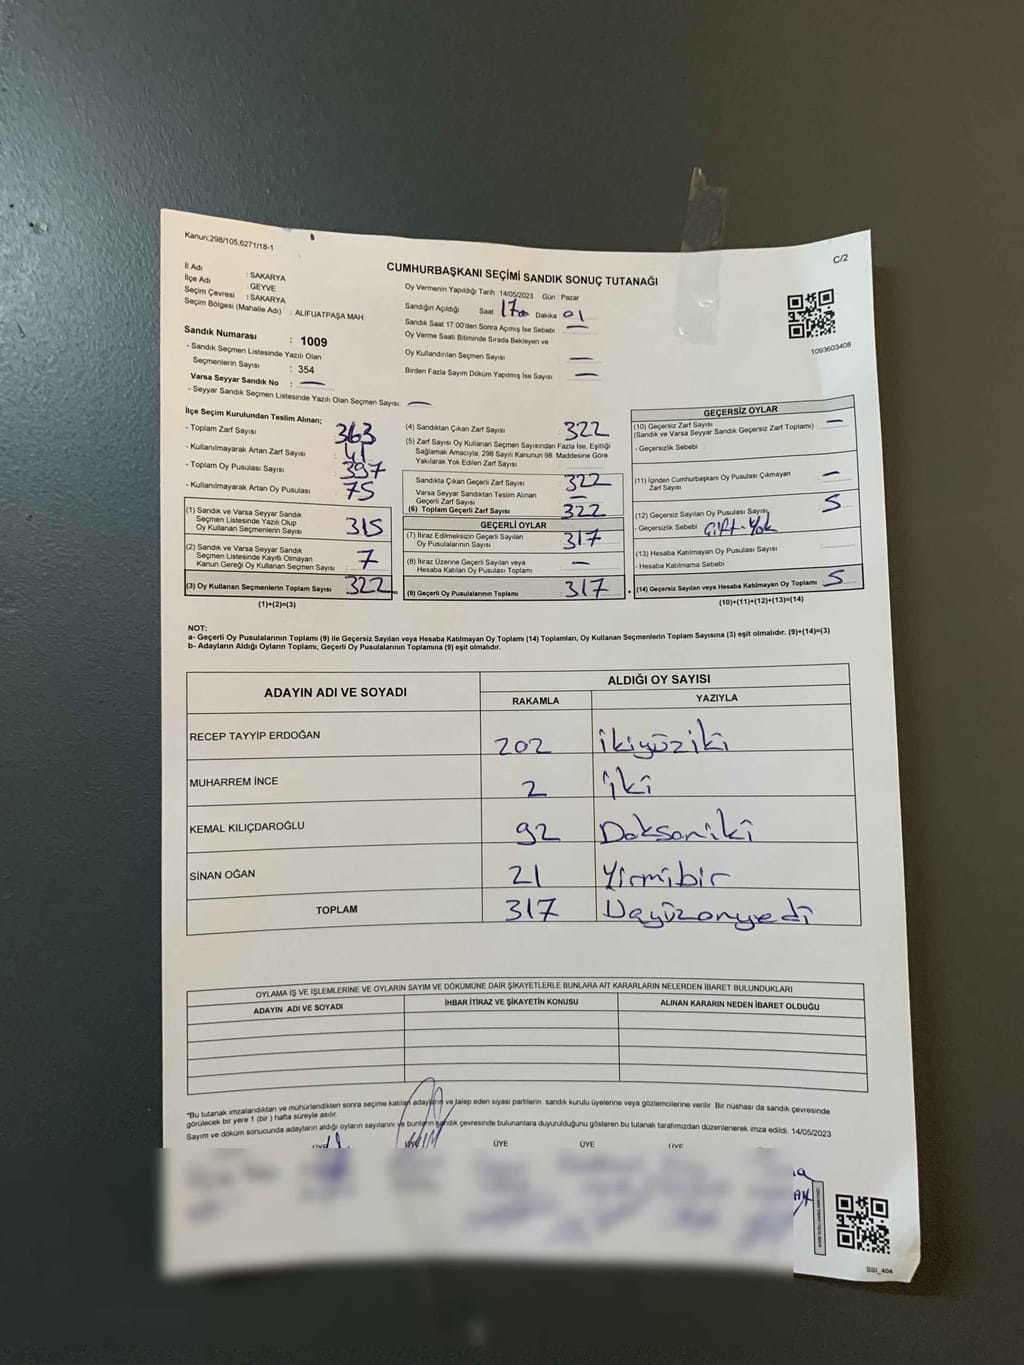 Kanun,298/105,6271/18-1
C/2
CUMHURBAŞKANI SEÇİMİ SANDIK SONUÇ TUTANAĞI
İl Adı : SAKARYA
İlçe Adı : GEYVE
Seçim Çevresi : SAKARYA
Seçim Bölgesi (Mahalle Adı) : ALİFUATPAŞA MAH.
Sandık Numarası : 1009
- Sandık Seçmen Listesinde Yazılı Olan
Seçmenlerin Sayısı : 354
Varsa Seyyar Sandık No : —
- Seyyar Sandık Seçmen Listesinde Yazılı Olan Seçmen Sayısı: —
Oy Vermenin Yapıldığı Tarih :14/05/2023 Gün : Pazar
Sandığın Açıldığı Saat 17 Dakika 01
Sandık Saat 17.00'den Sonra Açımış İse Sebebi : —
Oy Verme Saati Bitiminde Sırada Bekleyen ve
Oy Kullandırılan Seçmen Sayısı —
Birden Fazla Sayım Döküm Yapılmış İse Sayısı : —
1093603408
İlçe Seçim Kurulundan Teslim Alınan;
- Toplam Zarf Sayısı 363
- Kullanılmayarak Artan Zarf Sayısı 41
- Toplam Oy Pusulası Sayısı 397
- Kullanılmayarak Artan Oy Pusulası 75
(1) Sandık ve Varsa Seyyar Sandık
Seçmen Listesinde Yazılı Olup
Oy Kullanan Seçmenlerin Sayısı : 315
(2) Sandık ve Varsa Seyyar Sandık
Seçmen Listesinde Kayıtlı Olmayan
Kanun Gereği Oy Kullanan Seçmen Sayısı : 7
(3) Oy Kullanan Seçmenlerin Toplam Sayısı : 322
(1)+(2)=(3)
(4) Sandıktan Çıkan Zarf Sayısı 322
(5) Zarf Sayısı Oy Kullanan Seçmen Sayısından Fazla İse, Eşitliği
Sağlamak Amacıyla, 298 Sayılı Kanunun 98. Maddesine Göre
Yakılarak Yok Edilen Zarf Sayısı
Sandıkta Çıkan Geçerli Zarf Sayısı 322
Varsa Seyyar Sandıktan Teslim Alınan
Geçerli Zarf Sayısı —
(6) Toplam Geçerli Zarf Sayısı 322
GEÇERLİ OYLAR
(7) İtiraz Edilmeksizin Geçerli Sayılan
Oy Pusulalarının Sayısı 317
(8) İtiraz Üzerine Geçerli Sayılan veya
Hesaba Katılan Oy Pusulası Toplamı —
(9) Geçerli Oy Pusulalarının Toplamı 317
GEÇERSİZ OYLAR
(10) Geçersiz Zarf Sayısı —
(Sandık ve Varsa Seyyar Sandık Geçersiz Zarf Toplamı) :
- Geçersizlik Sebebi :
(11) İçinden Cumhurbaşkanı Oy Pusulası Çıkmayan
Zarf Sayısı —
(12) Geçersiz Sayılan Oy Pusulası Sayısı 5
- Geçersizlik Sebebi Çift-Yok
(13) Hesaba Katılmayan Oy Pusulası Sayısı
- Hesaba Katılmama Sebebi :
(14) Geçersiz Sayılan veya Hesaba Katılmayan Oy Toplamı 5
(10)+(11)+(12)+(13)=(14)
NOT:
a- Geçerli Oy Pusulalarının Toplamı (9) ile Geçersiz Sayılan veya Hesaba Katılmayan Oy Toplamı (14) Toplamları, Oy Kullanan Seçmenlerin Toplam Sayısına (3) eşit olmalıdır. (9)+(14)=(3)
b- Adayların Aldığı Oyların Toplamı, Geçerli Oy Pusulalarının Toplamına (9) eşit olmalıdır.
ADAYIN ADI VE SOYADI
ALDIĞI OY SAYISI
RAKAMLA YAZIYLA
RECEP TAYYİP ERDOĞAN 202 ikiyüziki
MUHARREM İNCE 2 iki
KEMAL KILIÇDAROĞLU 92 Doksaniki
SİNAN OĞAN 21 Yirmibir
TOPLAM 317 Üçyüzonyedi
OYLAMA İŞ VE İŞLEMLERİNE VE OYLARIN SAYIM VE DÖKÜMÜNE DAİR ŞİKAYETLERLE BUNLARA AİT KARARLARIN NELERDEN İBARET BULUNDUKLARI
ADAYIN ADI VE SOYADI İHBAR İTİRAZ VE ŞİKAYETİN KONUSU ALINAN KARARIN NEDEN İBARET OLDUĞU
*Bu tutanak imzalandıktan ve mühürlendikten sonra seçime katılan adayların ve talep eden siyasi partilerin sandık kurulu üyelerine veya gözlemcilerine verilir. Bir nüshası da sandık çevresinde
görülecek bir yere 1 (bir ) hafta süreyle asılır.
Sayım ve döküm sonucunda adayların aldığı oyların sayılarını ve bunların sandık çevresinde bulunanlara duyurulduğunu gösteren bu tutanak tarafımızdan düzenlenerek imza edildi. 14/05/2023
ÜYE ÜYE ÜYE ÜYE
SSI_404